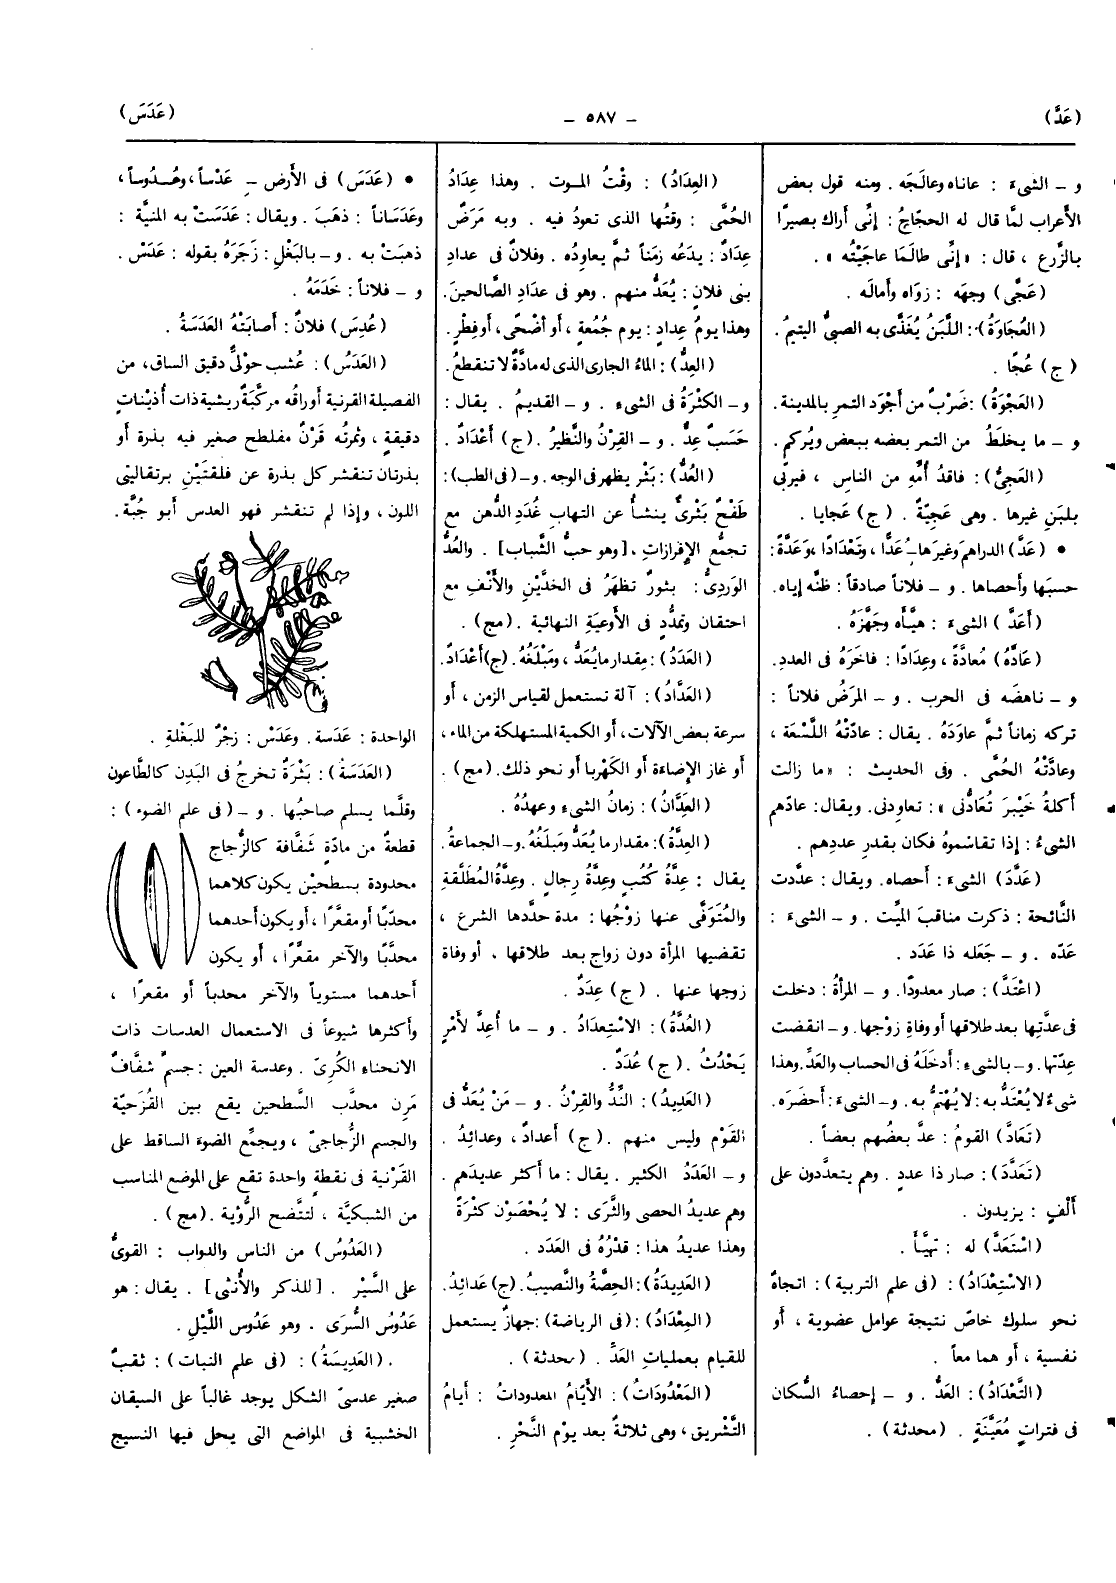 (عَدَّ)
– ٥٨٧ –
(عَدَسَ)
و – الشىءَ : عاناه وعالجَه . ومنه قول بعض
الأَعراب لمَّا قال له الحجّاجُ : إنِّى أَراك بصيرًا
بالزَّرع ، قال : «إنِّى طالَمَا عاجَيْتُه » .
(عَجَّى) وجهَه : زواه وأَمالَه .
(العُجَاوَةُ) : اللَّبَنُ يُغَذَّى به الصبىُّ اليتيمُ .
(ج) عُجًا .
(العَجْوَةُ) : ضَرْبٌ من أَجْوَد التمرِ بالمدينة .
و – ما يخلَطُ من التمر بعضه ببعض ويُركم .
(العَجِىُّ) : فاقدُ أُمِّهِ من الناس ، فيربَّى
بلبَنِ غيرها . وهى عَجِيَّةٌ . (ج) عَجايا .
• (عَدَّ) الدراهمَ وغيرَها –ُ عَدًّا ، وتَعْدادًا ، وعَدَّةً :
حسبَها وأَحصاها . و – فلاناً صادقاً : ظنَّه إياه .
(أَعَدَّ) الشىءَ : هيَّأَه وجَهَّزَهُ .
(عَادَّهُ) مُعادَّةً ، وعِدَادًا : فاخَرَهُ فى العددِ .
و – ناهضَه فى الحرب . و – المَرَضُ فلاناً :
تركه زماناً ثمَّ عاوَدَهُ . يقال : عادَّتْهُ اللَّسْعَة ،
وعادَّتْهُ الحُمَّى . وفى الحديث : «ما زالت
أَكلةُ خَيْبَرَ تُعَادُّنى » : تعاودنى. ويقال: عادَّهم
الشىءُ : إذا تقاسَموهُ فكان بقدرِ عددِهم .
(عَدَّدَ) الشىءَ : أَحصاه. ويقال : عدَّدت
النَّائحة : ذكرت مناقبَ الميِّت . و – الشىءَ :
عَدّه . و – جَعَله ذا عَدَد .
(اعْتَدَّ) : صار معدودًا . و – المرأةُ : دخلت
فى عدَّتِها بعد طلاقها أو وفاةِ زوْجها. و – انقضت
عِدّتها. و – بالشىءِ : أَدخَلَهُ فى الحساب والعَدِّ. وهذا
شىءٌ لا يُعْتَدُّ به : لا يُهْتَمُّ به. و – الشىءَ : أَحضَرَه.
(تَعَادَّ) القومُ : عدَّ بعضُهم بعضاً .
(تَعَدَّدَ) : صار ذا عددٍ . وهم يتعدَّدون على
أَلْفٍ : يزيدون .
(اسْتَعَدَّ) له : تهيَّأَ .
(الاسْتِعْدادُ) : (فى علم التربية) : اتجاهٌ
نحو سلوك خاصّ نتيجة عوامل عضوية ، أَو
نفسية ، أَو هما معاً .
(التَّعْدَادُ) : العَدُّ . و – إحصاءُ السُّكان
فى فتراتٍ مُعَيَّنَةٍ . (محدثة) .
(العِدَادُ) : وقْتُ الموت . وهذا عِدَادُ
الحُمَّى : وقتُها الذى تعودُ فيه . وبه مَرَضٌ
عِدَادٌ : يدَعُه زمَناً ثمَّ يعاوِدُه. وفلانٌ فى عدادِ
بنى فلان : يُعَدُّ منهم . وهو فى عدَادِ الصَّالحينَ.
وهذا يومُ عِدادٍ : يوم جُمُعةٍ ، أَو أَضْحًى، أَو فِطْرٍ.
(العِدُّ) : الماءُ الجارى الذى له مادَّةٌ لا تنقطعُ.
و – الكَثْرَةُ فى الشىءِ . و – القديمُ . يقال :
حَسَبٌ عِدٌّ . و – القِرْنُ والنَّظيرُ . (ج) أَعْدَادٌ .
(العُدُّ) : بَثْر يظهر فى الوجه . و – (فى الطب) :
طَفْحٌ بَثْرىٌّ ينشأُ عن التهابِ غُدَدِ الدُّهن مع
تجمُّعِ الإفرازاتِ ، [وهو حبُّ الشَّباب] . والعُدُّ
الوَردِىُّ : بثورٌ تظهَرُ فى الخدَّيْنِ والأَنْفِ مع
احتقان وتمدُّد فى الأَوعيَةِ النهائية . (مج) .
(العَدَدُ) : مِقدار ما يُعَدُّ ، ومَبْلَغُهُ. (ج) أَعْدَادٌ.
(العَدَّادُ) : آلة تستعمل لقياس الزمن ، أَو
سرعة بعض الآلات، أَو الكمية المستهلكة من الماء ،
أَو غاز الإضاءة أَو الكَهْرَبا أَو نحو ذلك. (مج) .
(العِدَّانُ) : زمانُ الشىءِ وعهدُهُ .
(العِدَّةُ) : مقدار ما يُعَدُّ ومَبلَغُهُ. و – الجماعةُ.
يقال : عِدَّةُ كُتُبٍ وعِدَّةُ رجالٍ . وعِدَّةُ المُطَلَّقةِ
والمُتَوَفَّى عنها زوْجُها : مدة حدَّدها الشرع ،
تقضيها المرأة دون زواج بعد طلاقها ، أَو وفاة
زوجها عنها . (ج) عِدَدٌ .
(العُدَّةُ) : الاسْتِعدَادُ . و – ما أُعِدَّ لأَمْرٍ
يَحْدُثُ . (ج) عُدَدٌ .
(العَدِيدُ) : النِّدُّ والقِرْنُ . و – مَنْ يُعَدُّ فى
القَوْم وليس منهم . (ج) أَعدادٌ ، وعدائدُ .
و – العَدَدُ الكثير . يقال : ما أَكثر عديدَهم .
وهم عديدُ الحصى والثَّرَى : لا يُحْصَوْن كثرَةً
وهذا عديدُ هذا : قدْرُهُ فى العَدَد .
(العَدِيدَةُ) : الحِصَّةُ والنَّصيبُ. (ج) عَدائدُ.
(المِعْدَادُ) : (فى الرياضة) : جهازٌ يستعمل
للقيام بعملياتِ العَدِّ . (محدثة) .
(المَعْدُودَاتُ) : الأَيَّامُ المعدوداتُ : أَيامُ
التَّشْريق ، وهى ثلاثةٌ بعد يوْم النَّحْرِ .
• (عَدَسَ) فى الأَرض – عَدْساً، وعُـدُوساً ،
وعَدَسَاناً : ذهَبَ . ويقال : عَدَسَتْ به المنيَّة :
ذهبَتْ به . و – بالبَغْلِ : زَجَرَهُ بقوله : عَدَسْ .
و – فلاناً : خَدَمَهُ .
(عُدِسَ) فلانٌ : أَصابَتْهُ العَدَسَةُ .
(العَدَسُ) : عُشب حوْلىٌّ دقيق الساق، من
الفصيلة القرنية أَوراقُه مركَّبةٌ ريشية ذات أُذَيْناتٍ
دقيقةٍ ، وثمرتُه قَرْنٌ مفلطح صغير فيه بذرة أَو
بذرتان تنقشر كل بذرة عن فلقتَيْنِ برتقاليتى
اللون ، وإذا لم تنقشر فهو العدس أَبو جُبَّة .
الواحدة : عَدَسة . وعَدَسْ : زجْرٌ للبَغْلةِ .
(العَدَسَةُ) : بَثْرَةٌ تخرجُ فى البَدَنِ كالطَّاعون
وقلَّما يسلم صاحبُها . و – (فى علم الضوء) :
قطعةٌ من مادّةٍ شَفَّافة كالزُّجاج
محدودة بسطحَيْن يكون كلاهما
محدّبًا أَو مقعَّرًا ، أَو يكون أَحدهما
محدَّبًا والآخر مقعَّرًا ، أَو يكون
أَحدهما مستوياً والآخر محدباً أَو مقعرًا ،
وأَكثرها شيوعاً فى الاستعمال العدسات ذات
الانحناء الكُرِىّ . وعدسة العين : جسمٌ شفَّافٌ
مَرِن محدَّب السَّطحين يقع بين القُزَحيَّة
والجسم الزُّجاجىّ ، ويجمِّع الضوءَ الساقط على
القَرْنية فى نقطةٍ واحدة تقع على الموضع المناسب
من الشبكيَّة ، لتتَّضح الرُّؤية . (مج) .
(العَدُوسُ) من الناس والدواب : القوىُّ
على السَّيْر . [للذكر والأُنثى] . يقال : هو
عَدُوسُ السُّرَى . وهو عَدُوس اللَّيْلِ .
(العَدِيسَةُ) : (فى علم النبات) : ثقبٌ
صغير عدسىّ الشكل يوجد غالباً على السيقان
الخشبية فى المواضع التى يحل فيها النسيج